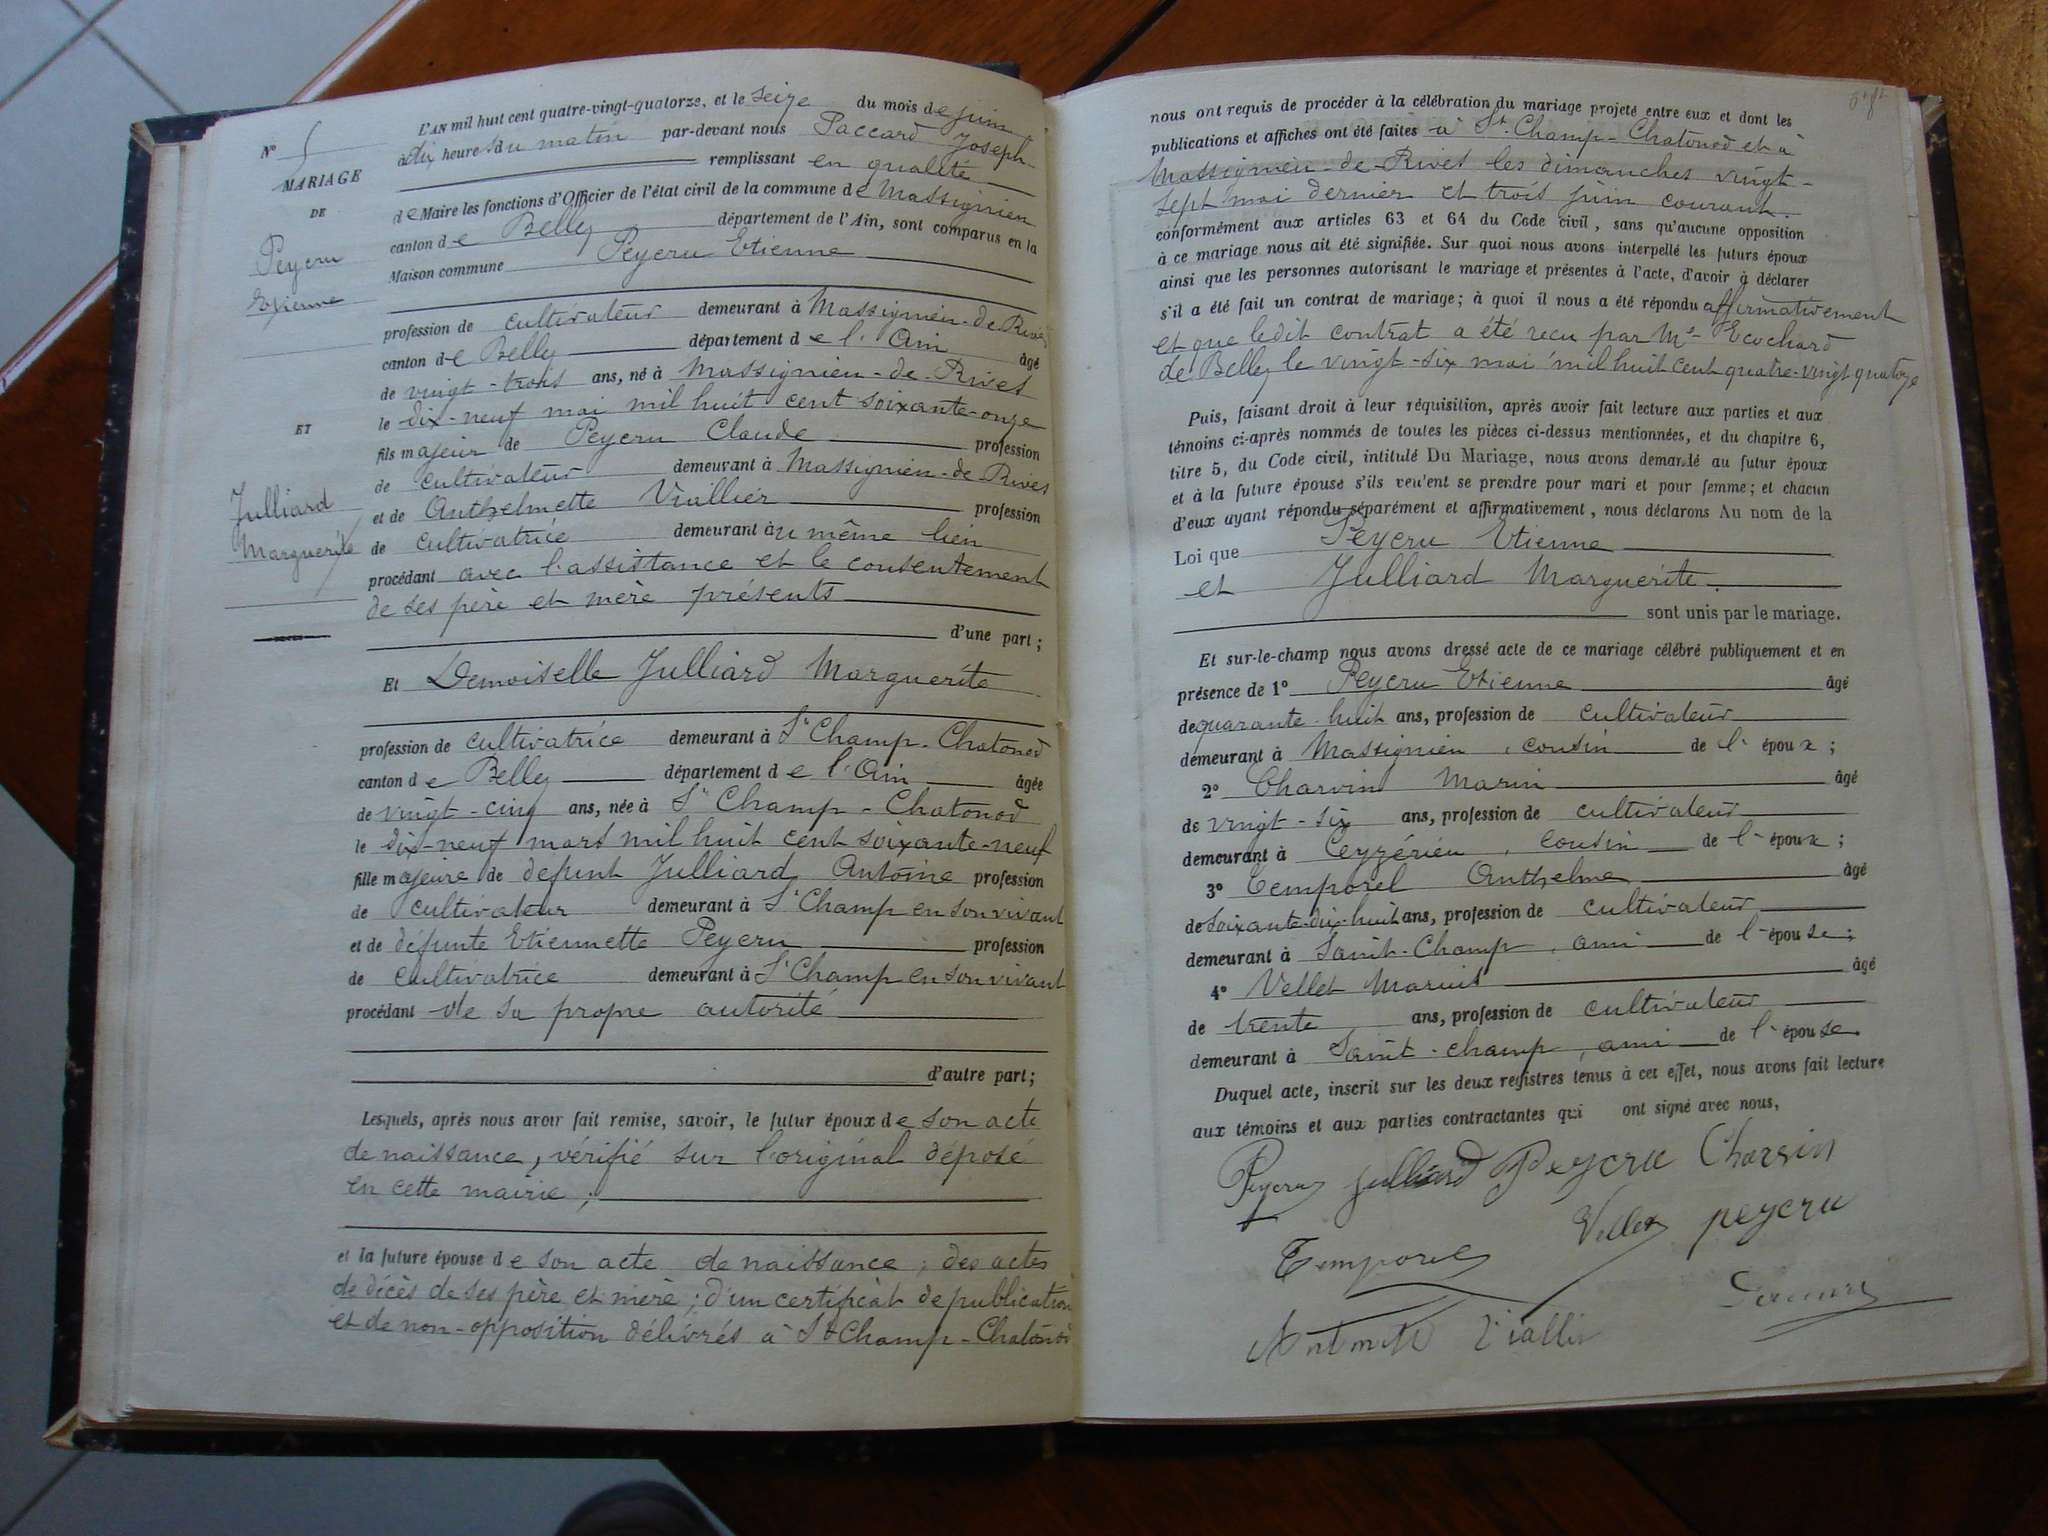 N° 5
MARIAGE
DE
Peyeru
Etienne
ET
Julliard
Marguerite
L'AN mil huit cent quatre-vingt-quatorze, et le seize du mois de juin
à dix heures du matin par-devant nous Paccard Joseph
remplissant en qualité
de Maire les fonctions d'Officier de l'état civil de la commune de Massignieu
canton de Belley département de l'Ain, sont comparus en la
Maison commune Peyeru Etienne
profession de cultivateur demeurant à Massignieu-de-Rives
canton de Belley département de l'Ain âgé
de vingt-trois ans, né à Massignieu-de-Rives
le dix-neuf mai mil huit cent soixante-onze
fils majeur de Peyeru Claude profession
de cultivateur demeurant à Massignieu-de Rives
et de Anthelmette Viallier profession
de cultivatrice demeurant au même lieu
procédant avec l'assistance et le consentement
de ses père et mère présents
d'une part;
Et Demoiselle Julliard Marguerite
profession de cultivatrice demeurant à St Champ-Chatonod
canton de Belley département de l'Ain âgée
de vingt-cinq ans, née à St Champ-Chatonod
le dix-neuf mars mil huit cent soixante-neuf
fille majeure de défunt Julliard Antoine profession
de cultivateur demeurant à St Champ en son vivant
et de défunte Etiennette Peyeru profession
de cultivatrice demeurant à St Champ en son vivant
procédant de sa propre autorité
d'autre part;
Lesquels, après nous avoir fait remise, savoir, le futur époux de son acte
de naissance, vérifié sur l'original déposé
en cette mairie;
et la future épouse de son acte de naissance; des actes
de décès de ses père et mère; d'un certificat de publication
et de non-opposition délivrés à St Champ-Chatonod
nous ont requis de procéder à la célébration du mariage projeté entre eux et dont les
publications et affiches ont été faites à St. Champ-Chatonod et à
Massignieu-de-Rives les dimanches vingt-
sept mai dernier et trois juin courant.
conformément aux articles 63 et 64 du Code civil, sans qu'aucune opposition
à ce mariage nous ait été signifiée. Sur quoi nous avons interpellé les futurs époux
ainsi que les personnes autorisant le mariage et présentes à l'acte, d'avoir à déclarer
s'il a été fait un contrat de mariage; à quoi il nous a été répondu affirmativement
et que ledit contrat a été reçu par Me Ecochard
de Belley le vingt-six mai mil huit cent quatre-vingt quatorze
Puis, faisant droit à leur réquisition, après avoir fait lecture aux parties et aux
témoins ci-après nommés de toutes les pièces ci-dessus mentionnées, et du chapitre 6,
titre 5, du Code civil, intitulé Du Mariage, nous avons demandé au futur époux
et à la future épouse s'ils veulent se prendre pour mari et pour femme; et chacun
d'eux ayant répondu séparément et affirmativement, nous déclarons Au nom de la
Loi que Peyeru Etienne
et Julliard Marguerite
sont unis par le mariage.
Et sur-le-champ nous avons dressé acte de ce mariage célébré publiquement et en
présence de 1° Peyeru Etienne âgé
de quarante huit ans, profession de cultivateur
demeurant à Massignieu, cousin de l'époux;
2° Charvin Marin âgé
de vingt-six ans, profession de cultivateur
demeurant à Ceyzérieu, cousin de l'époux;
3° Temporel Anthelme âgé
de soixante-dix-huit ans, profession de cultivateur
demeurant à Saint-Champ, ami de l'épouse;
4° Vellet Marius âgé
de trente ans, profession de cultivateur
demeurant à Saint-champ, ami de l'épouse.
Duquel acte, inscrit sur les deux registres tenus à cet effet, nous avons fait lecture
aux témoins et aux parties contractantes qui ont signé avec nous,
Peyeru Julliard Peyeru Charvin
Vellet peyeru
Temporel
Viallier